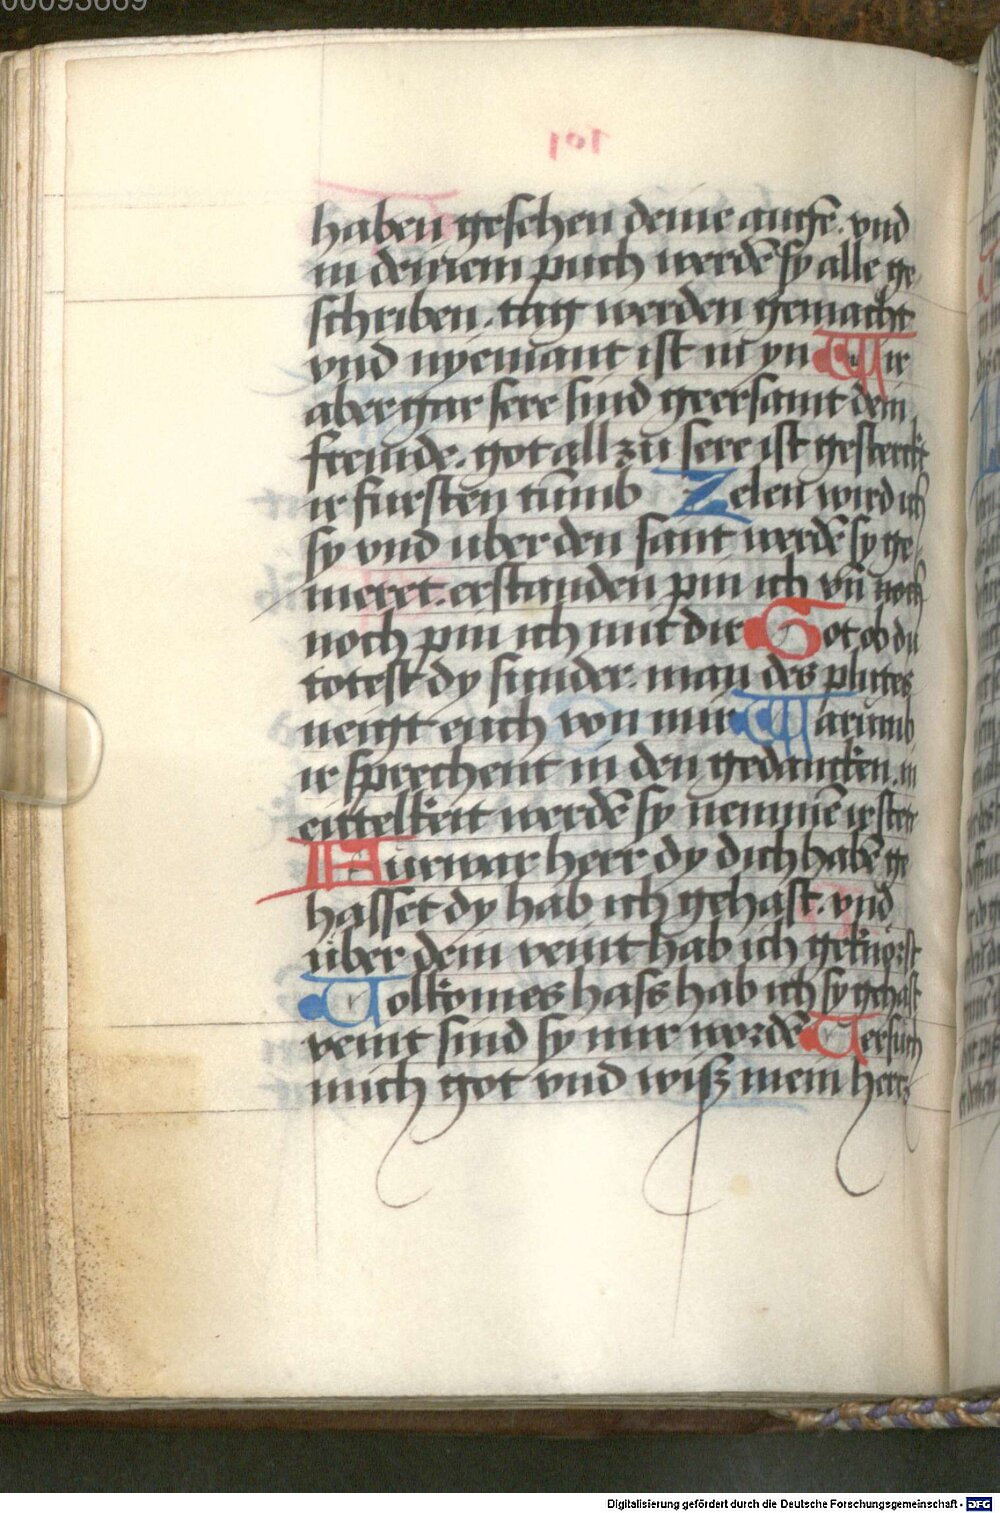 00093669
101
haben gesehen deine augē. vnd
in deinem puch werdē sy alle ge
schriben. tag werden gemacht
vnd nyemant ist in yn Mir
aber gar sere sind geersamt dein
freunde. got all zu sere ist gesterckt
ir fursten tumb Zelen wird ich
sy vnd uber den sant werdē sy ge
meret. erstanden pin ich vn̄ noch
noch pin ich mit dir Got ob du
totest dy sunder. man des plutes
neigt euch von mir Warumb
ir sprechent in den gedancken. in
eittelkeit werdē sy nemmē ir stete
Furwar herr dy dich habē ge
hasset dy hab ich gehast. vnd
über dein veint hab ich geknorst
Volkomes hass hab ich sy gehast
veint sind sy mir wordē Versuch
mich got vnd wisz mein hercz
Digitalisierung gefördert durch die Deutsche Forschungsgemeinschaft - DFG